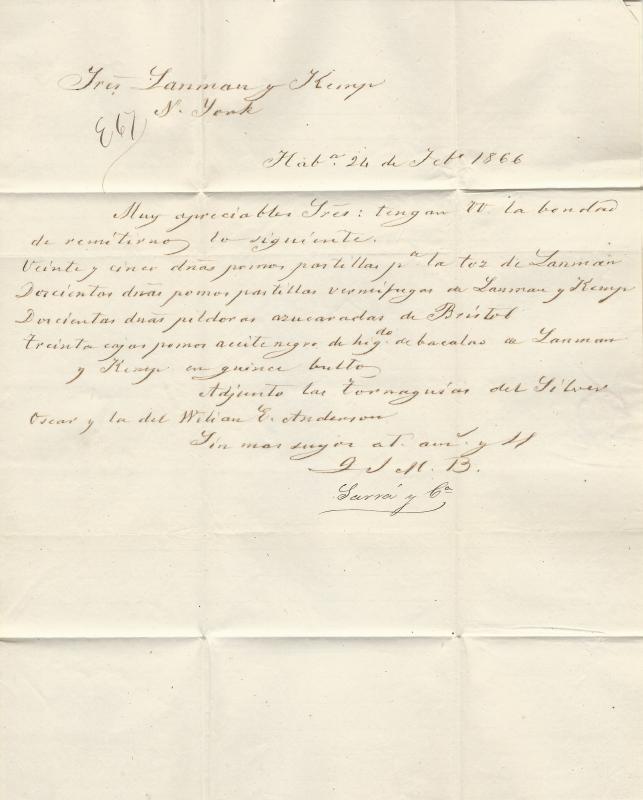 Sres Lanman y Kemp
N. York
Hab.ª 24 de Feb.º 1866
Muy apreciables Sres: tengan VV. la bondad
de remitirnos lo siguiente.
Veinte y cinco dnãs pomos pastillas p.ª la toz de Lanmãn
Doscientas dnãs pomos pastillas vermifugas de Lanman y Kemp
Doscientas dnãs pildoras azucaradas de Bristol
treinta cajas pomos aceite negro de hig.do de bacalao de Lanman
y Kemp en quince bultos
Adjunto las tornaguias del Silver
Oscar y la del Wilian E. Anderson
Sin mas suyos at. am.s y SS
Q S M. B.
Sarrá y Cª